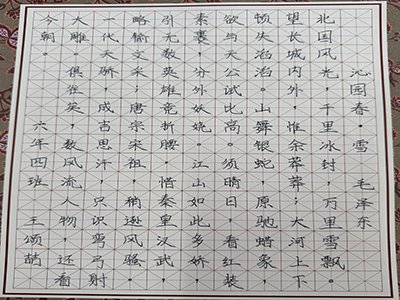 沁园春·雪 毛泽东
北国风光，千里冰封，万里雪飘。
望长城内外，惟余莽莽；大河上下
顿失滔滔。山舞银蛇，原驰蜡象，
欲与天公试比高。须晴日，看红装
素裹，分外妖娆。江山如此多娇，
引无数英雄竞折腰。惜秦皇汉武，
略输文采；唐宗宋祖，稍逊风骚。
一代天骄，成吉思汗，只识弯弓射
大雕。俱往矣，数风流人物，还看
今朝。 六年四班 王颂喆